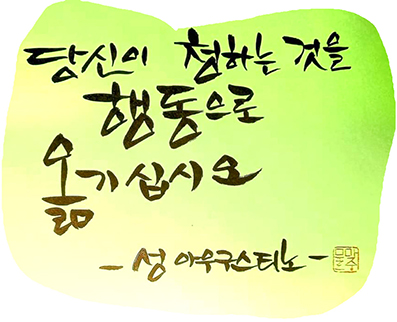 당신이 청하는 것을
행동으로
옮기십시오
- 성 아우구스티노 -